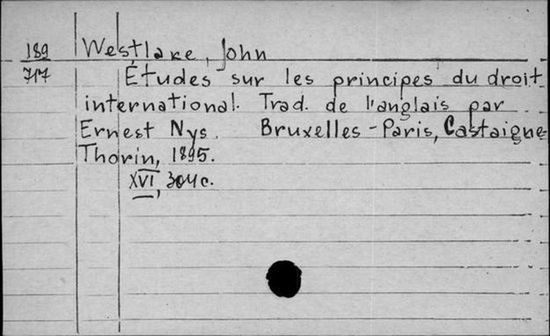 189 Westlake, John
717 Études sur les principes du droit
international. Trad. de l'anglais par
Ernest Nys. Bruxelles-Paris, Castaigne-
Thorin, 1895.
XVI, 304 c.